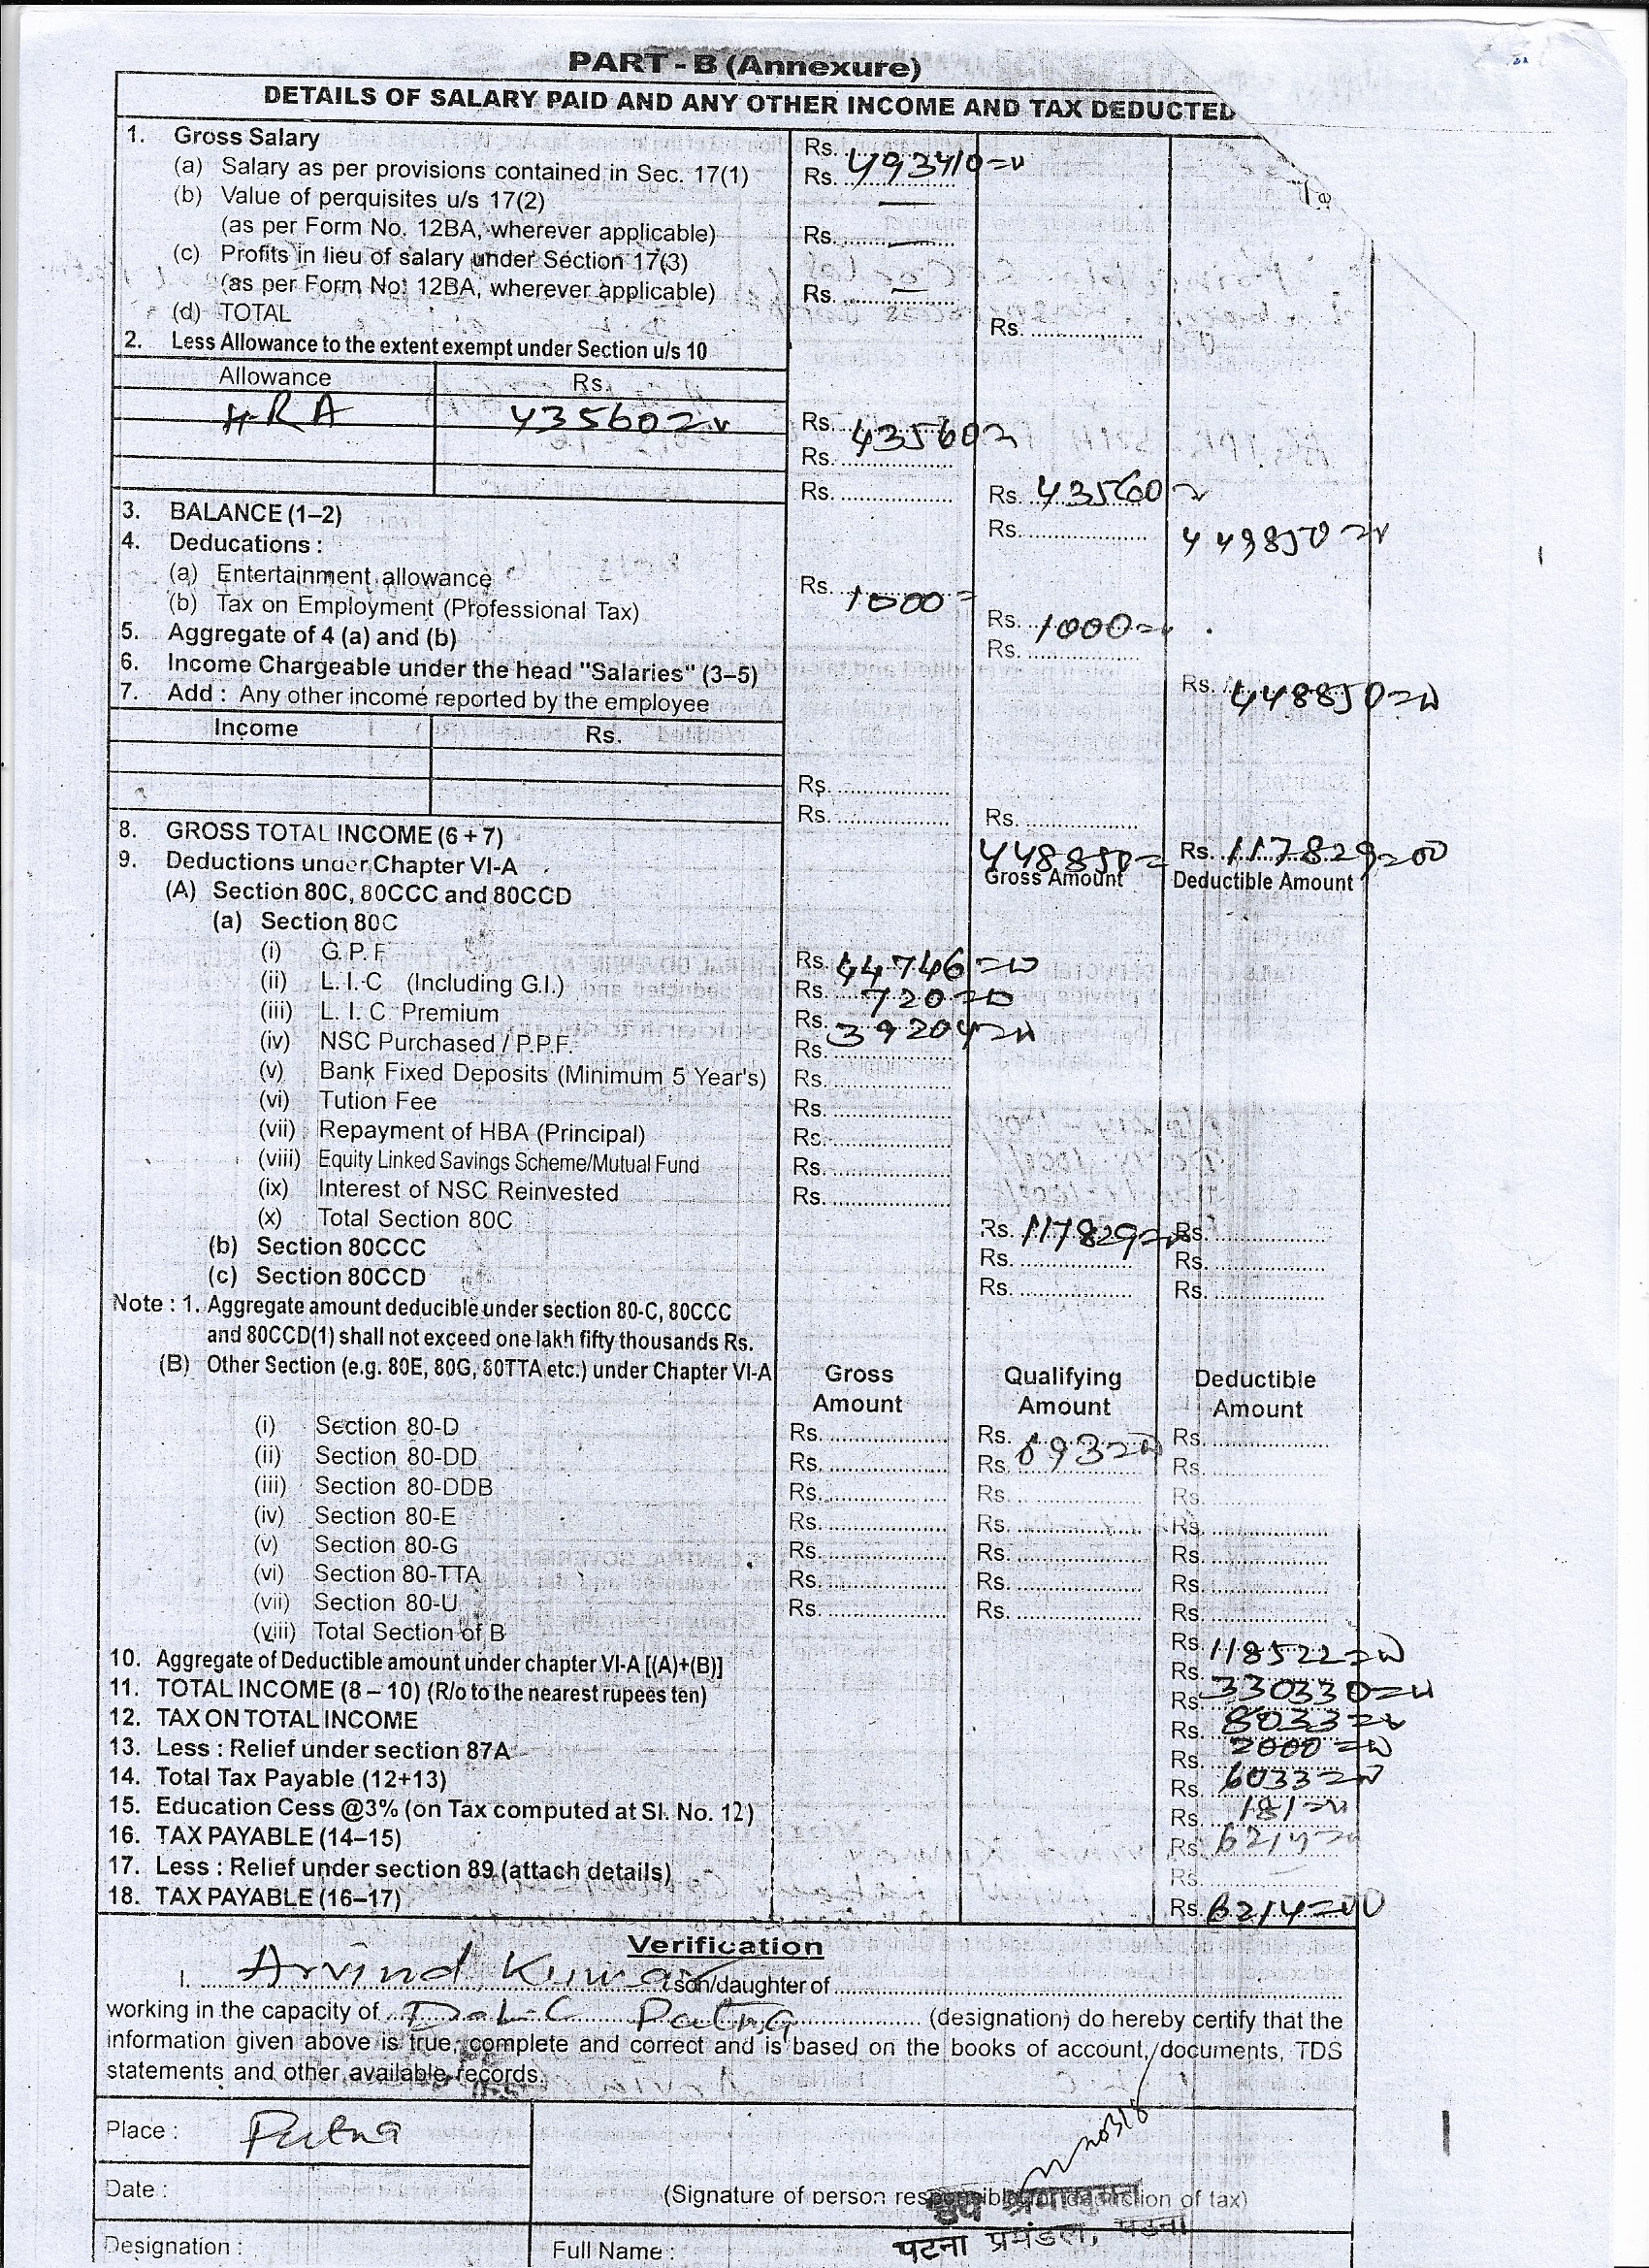 PART - B (Annexure)
DETAILS OF SALARY PAID AND ANY OTHER INCOME AND TAX DEDUCTED
1. Gross Salary Rs.
(a) Salary as per provisions contained in Sec. 17(1) Rs. 493410=
(b) Value of perquisites u/s 17(2) —
(as per Form No. 12BA, wherever applicable) Rs. —
(c) Profits in lieu of salary under Section 17(3)
(as per Form No. 12BA, wherever applicable) Rs. —
(d) TOTAL Rs.
2. Less Allowance to the extent exempt under Section u/s 10
Allowance Rs.
HRA 43560= Rs. 43560=
Rs.
Rs. Rs. 43560=
3. BALANCE (1–2) Rs. 449850=
4. Deducations :
(a) Entertainment allowance Rs. 1000=
(b) Tax on Employment (Professional Tax) Rs. 1000=
5. Aggregate of 4 (a) and (b) Rs.
6. Income Chargeable under the head "Salaries" (3–5) Rs. 448850=
7. Add : Any other income reported by the employee
Income Rs.
Rs.
Rs. Rs.
8. GROSS TOTAL INCOME (6 + 7) 448850= Rs. 117829=00
9. Deductions under Chapter VI-A Gross Amount Deductible Amount
(A) Section 80C, 80CCC and 80CCD
(a) Section 80C
(i) G.P.F Rs. 44746=
(ii) L.I.C (Including G.I.) Rs. 720=
(iii) L.I.C Premium Rs. 39204=
(iv) NSC Purchased / P.P.F. Rs.
(v) Bank Fixed Deposits (Minimum 5 Year's) Rs.
(vi) Tution Fee Rs.
(vii) Repayment of HBA (Principal) Rs.
(viii) Equity Linked Savings Scheme/Mutual Fund Rs.
(ix) Interest of NSC Reinvested Rs.
(x) Total Section 80C Rs. 117829= Rs.
(b) Section 80CCC Rs. Rs.
(c) Section 80CCD Rs. Rs.
Note : 1. Aggregate amount deducible under section 80-C, 80CCC
and 80CCD(1) shall not exceed one lakh fifty thousands Rs.
(B) Other Section (e.g. 80E, 80G, 80TTA etc.) under Chapter VI-A Gross Amount Qualifying Amount Deductible Amount
(i) Section 80-D Rs. Rs. 693= Rs.
(ii) Section 80-DD Rs. Rs. Rs.
(iii) Section 80-DDB Rs. Rs. Rs.
(iv) Section 80-E Rs. Rs. Rs.
(v) Section 80-G Rs. Rs. Rs.
(vi) Section 80-TTA Rs. Rs. Rs.
(vii) Section 80-U Rs. Rs. Rs.
(viii) Total Section of B Rs. 118522=
10. Aggregate of Deductible amount under chapter VI-A [(A)+(B)] Rs. 330330=
11. TOTAL INCOME (8 – 10) (R/o to the nearest rupees ten) Rs. 8033=
12. TAX ON TOTAL INCOME Rs. 2000=
13. Less : Relief under section 87A Rs. 6033=
14. Total Tax Payable (12+13) Rs. 181=
15. Education Cess @3% (on Tax computed at Sl. No. 12) Rs. 6214=
16. TAX PAYABLE (14–15) Rs.
17. Less : Relief under section 89 (attach details) Rs.
18. TAX PAYABLE (16–17) Rs. 6214=00
Verification
I. Arvind Kumar son/daughter of
working in the capacity of Patna (designation) do hereby certify that the
information given above is true, complete and correct and is based on the books of account, documents, TDS
statements and other available records.
Place : Patna
Date :
(Signature of person responsible for deduction of tax)
पटना प्रमंडल, पटना
Designation : Full Name :